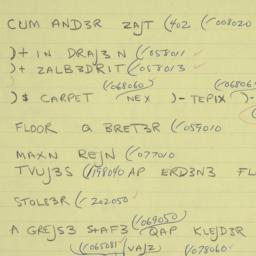 CUM AND3R ZAJT (402 (✓008020
)+ IN DRAJ3N (✓058011 ✓
)+ ZALB3DRIT (✓058013 ✓
(✓068060) (✓06806
)$ CARPET NEX )- TEPIX )-
FLOOR a BRET3R (✓059010
MAXN REJN (✓077010
TVUJ3S (✓198040 AP ERD3N3 FL
STOLE3R (✓202050
(✓069050)
A GREJS3 STAF3 QAP KLEJD3R
(✓065081 (VAJZ) (✓078060